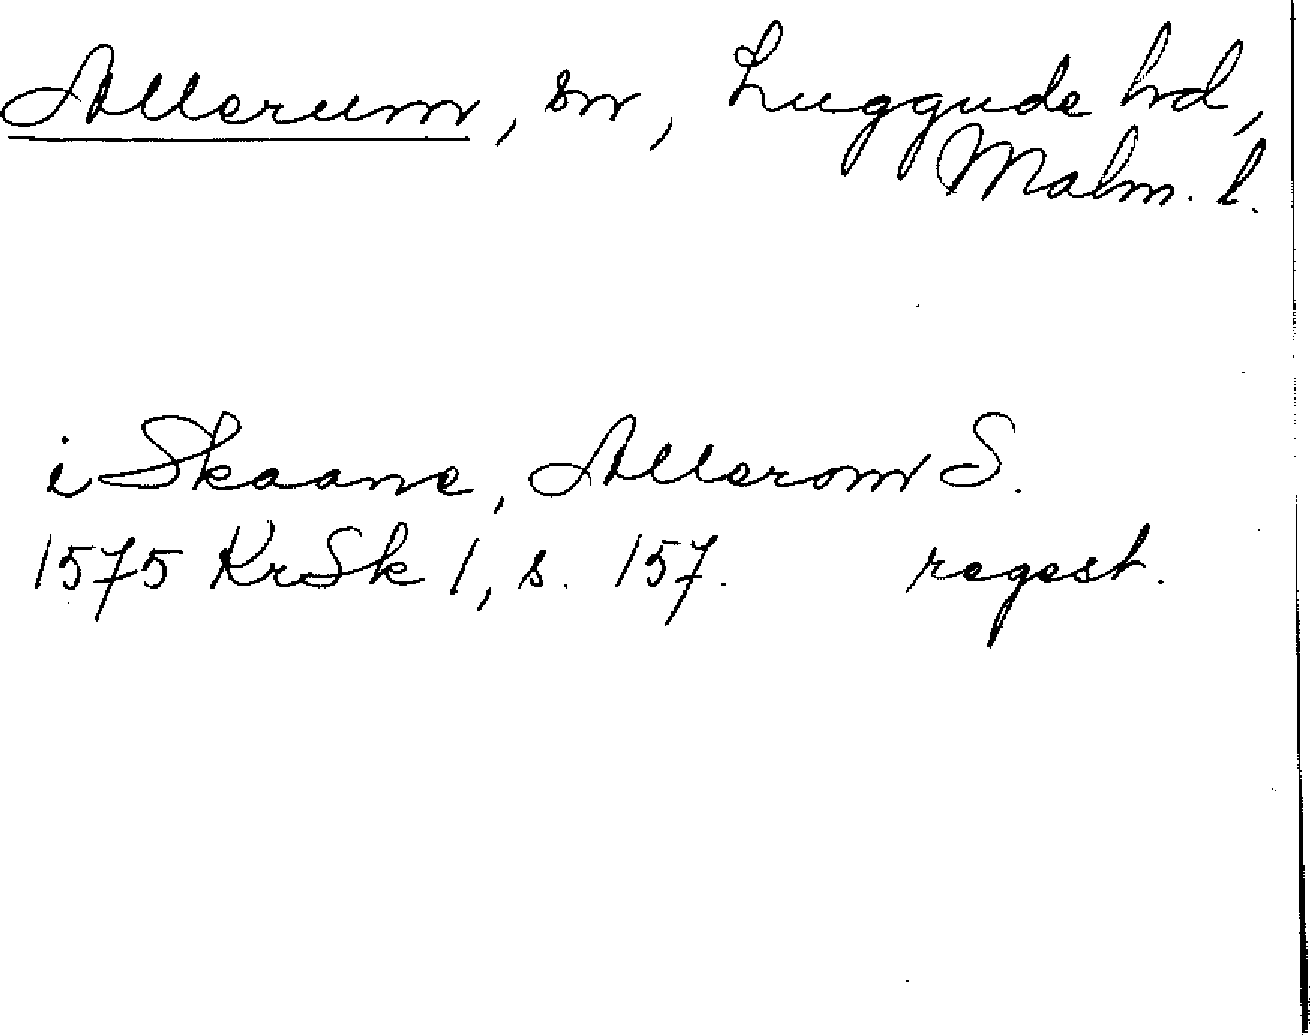 Allerum, sn, Luggude hd,
Malm. l.
i Skaane, Allerom S.
1575 KrSk 1, s. 157. regest.